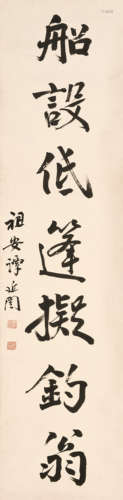 船設低篷擬釣翁
祖安譚延闓